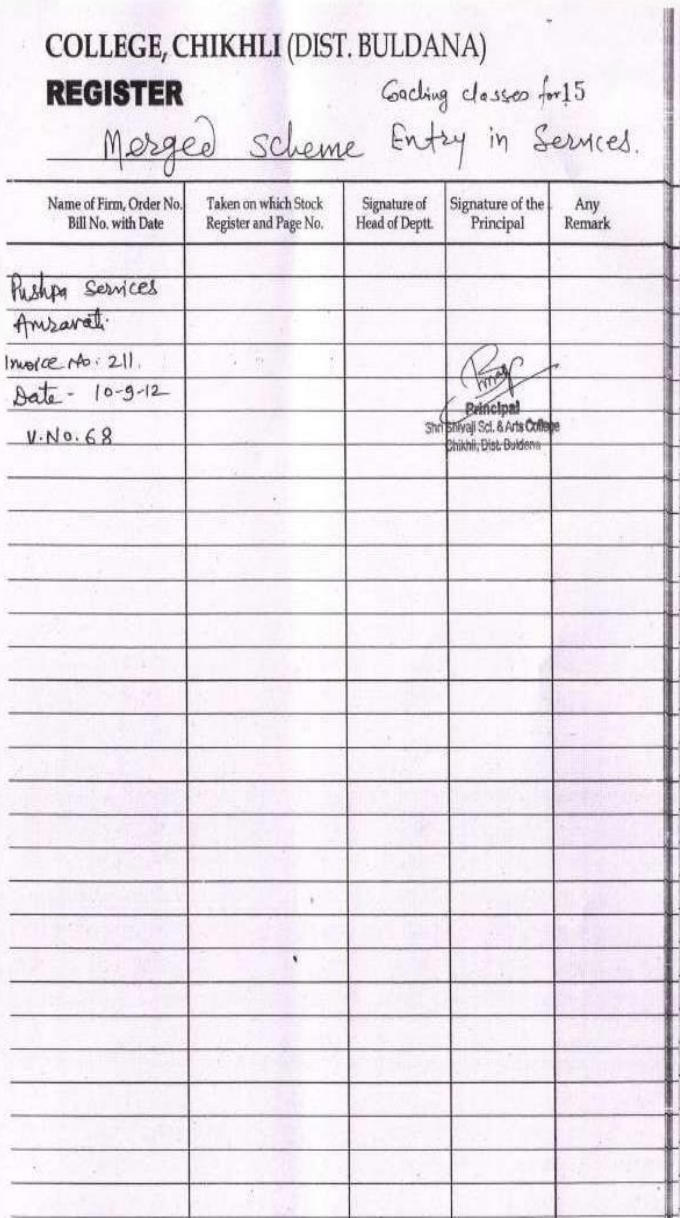 COLLEGE, CHIKHLI (DIST. BULDANA)
REGISTER
Coaching classes for 15
Merged scheme Entry in Services.
Name of Firm, Order No. Bill No. with Date
Taken on which Stock Register and Page No.
Signature of Head of Deptt.
Signature of the Principal
Any Remark
Pushpa Services
Amravati.
Invoice No: 211.
Date - 10-9-12
V.No. 68
Principal
Shri Shivaji Sci. & Arts College
Chikhli, Dist. Buldana